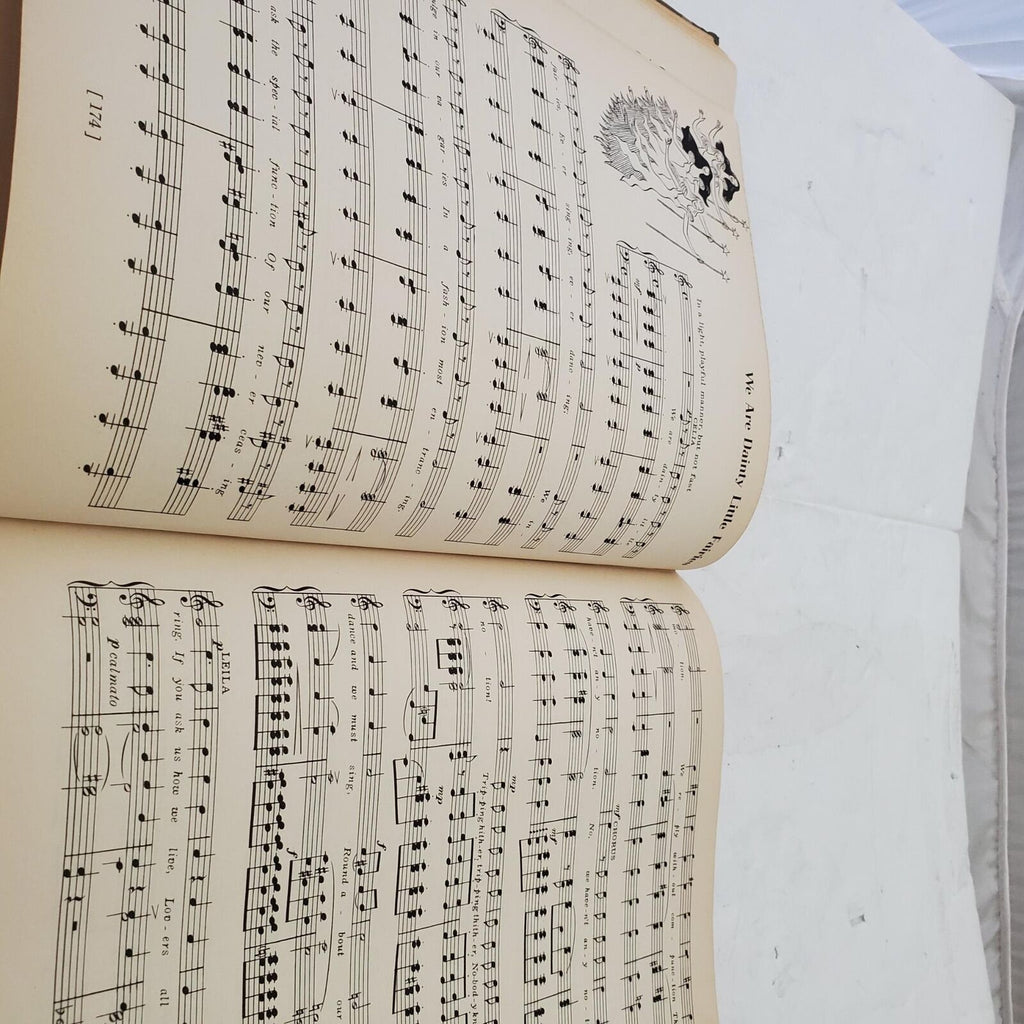 We Are Dainty Little Fairies
In a light, playful manner, but not fast
CELIA
We are dain-ty lit-tle
mf
p
fair-ies, Ev-er sing-ing, ev-er danc-ing; We in-
dulge in our va-gar-ies In a fash-ion most en-tranc-ing.
ask the spec-ial func-tion Of our nev-er ceas-ing
[ 174 ]
mo-tion, We re-ply with-out com-punc-tion Th
have-n't an-y no-tion.
CHORUS
mf
No, we have-n't an-y no-
mf
no-tion!
mp
Trip-ping hith-er, trip-ping thith-er, No-bod-y kn
mp
dance and we must sing,
f
Round a-bout our
f
LEILA
p
ring. If you ask us how we live, Lov-ers all
p calmato